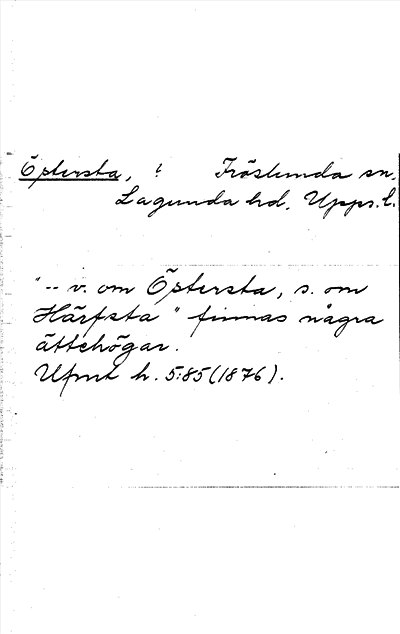 Östersta, ? Fröslunda sn,
Lagunda hd, Upps. l.
"-- v. om Östersta, s. om
Härfsta" finnas några
ättehögar.
Ufmt h. 5:85 (1876).